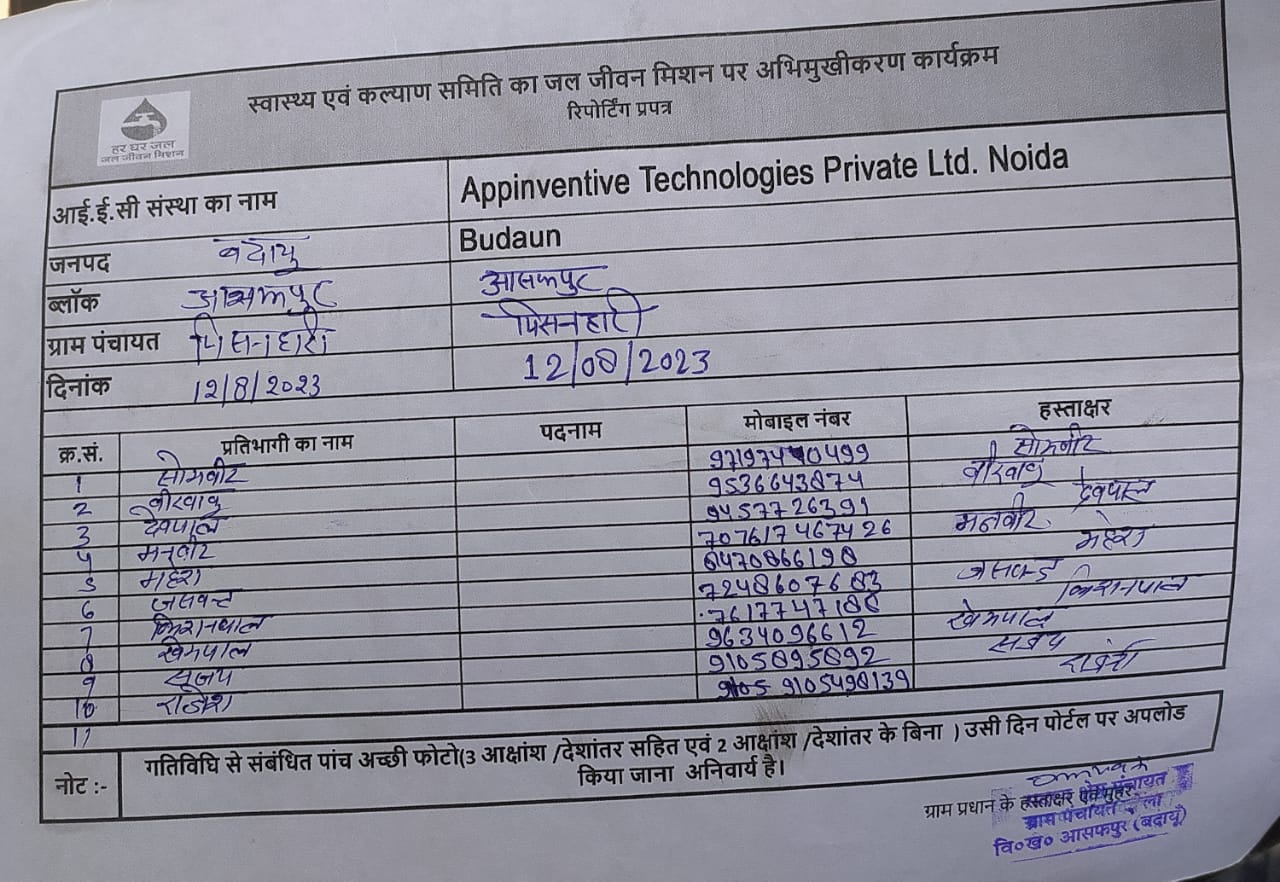 स्वास्थ्य एवं कल्याण समिति का जल जीवन मिशन पर अभिमुखीकरण कार्यक्रम
रिपोर्टिंग प्रपत्र
हर घर जल
जल जीवन मिशन
आई.ई.सी संस्था का नाम Appinventive Technologies Private Ltd. Noida
जनपद बदायु Budaun
ब्लॉक आसफपुर आसफपुर
ग्राम पंचायत पिसनहारी पिसनहारी
दिनांक 12/8/2023 12/08/2023
क्र.सं. प्रतिभागी का नाम पदनाम मोबाइल नंबर हस्ताक्षर
1 सोमवीर 9719740499 सोमवीर
2 वीरबाबु 9536643874 वीरबाबु
3 देवपाल 9457726391 देवपाल
4 मनवीर 707617467426 मनवीर
5 महेश 8470866198 महेश
6 जसवन्ट 7248607683
7 किशनपाल 7617747188 किशनपाल
8 खेमपाल 9634096612 खेमपाल
9 सूजय 9105895892 सजय
10 राजेश 9105498139
11
नोट :- गतिविधि से संबंधित पांच अच्छी फोटो(3 आक्षांश /देशांतर सहित एवं 2 आक्षांश /देशांतर के बिना ) उसी दिन पोर्टल पर अपलोड
किया जाना अनिवार्य है।
ग्राम प्रधान के हस्ताक्षर एवं मुहर
ग्राम पंचायत
वि०ख० आसफपुर (बदायूँ)